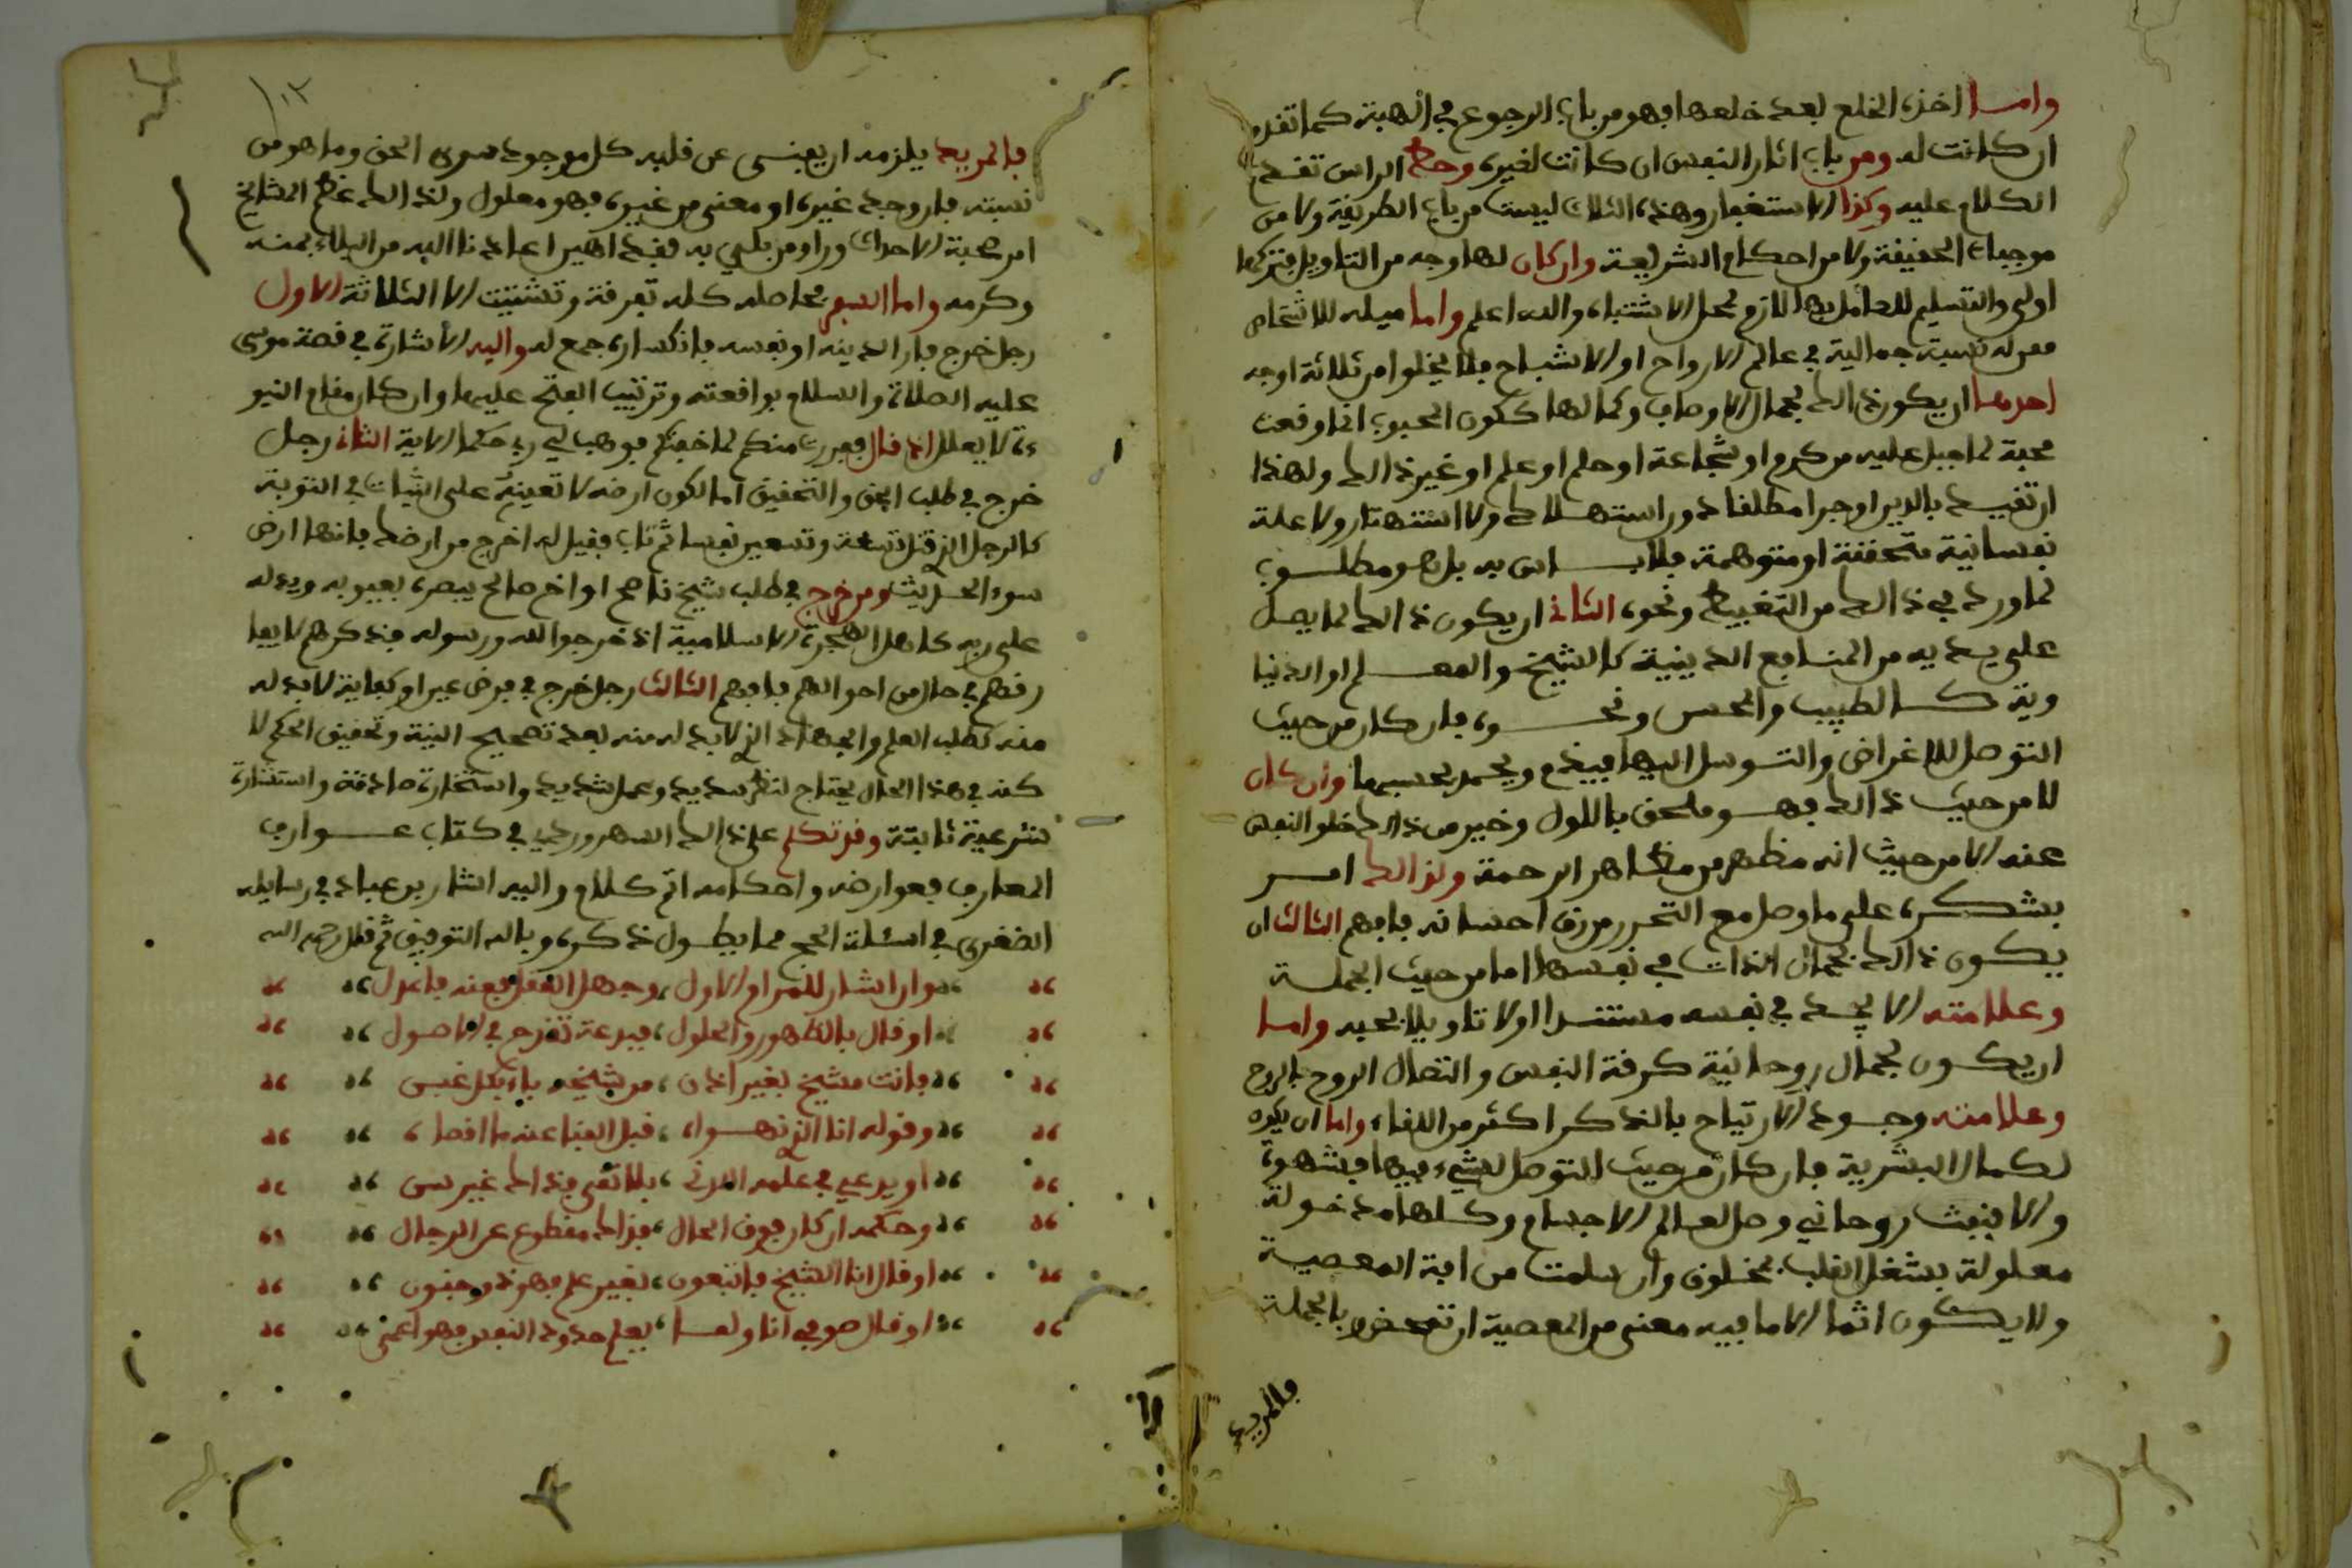 واما اخذه الخلع بعد خلعها فهو من باب الرجوع في الهبة كما تقدم
ان كانت له ومن باب اثار النفس ان كانت لغيره وحط الراس تقدم
الكلام عليه وكذا الاستغفار وهذه الثلاث ليست من باب الطريقة ولا من
موجبات الحقيقة ولا من احكام الشريعة وان كان لها وجه من التاويل فتركها
اولى والتسليم للعامل بها لازم لمحل الاشتباه والله اعلم واما ميله للاشخاص
فمن له نسبة جمالية في عالم الارواح او الاشباح فلا يخلوا من ثلاثة اوجه
احدها ان يكون ذالك لجمال الاوصاف وكمالها ككون المحبوب انما وقعت
محبة لما جبل عليه من كرم او شجاعة او حلم او علم او غير ذالك ولهذا
ان تقيد بالدين اوجرا مطلقا دون استهلاك ولا استهتار ولا علة
نفسانية متحققة او متوهمة فلا باس به بل هو مطلوب
لما ورد في ذالك من التغبيط ونحوه الثاني ان يكون ذالك لما يصل
على يديه من المنافع الدينية كالشيخ والمعلم او الدنيا
وية كالطبيب والمحسن ونحوه فان كان من حيث
التوصل للاغراض والتوسل اليها فيذم ويحمد بحسبها وان كان
لا من حيث ذالك فهو ملحق بالاول وخير من ذالك خلو النفس
عنه الا من حيث انه مظهر من مظاهر الرحمة ولذالك امر
بشكره على ما وصل مع التحرر من رق احسانه فافهم الثالث ان
يكون ذالك لجمال الذات في نفسها اما من حيث الجملة
وعلامته الا يجد في نفسه مستندا اولا تاويلا بحبه واما
ان يكون لجمال روحانية كرقة النفس واتصال الروح بالروح
وعلامته وجود الارتياح بالذكر اكثر من اللقاء واما ان يكون
لكمال البشرية فان كان من حيث التوصل لشيء فيها فشهوة
والا فنفث روحاني وصل لعالم الاجسام وكلها مدخولة
معلولة بشغل القلب بمخلوق وان سلمت من افة المعصية
ولا يكون اثما الا ما فيه معنى من المعصية ان تمحض بالجملة
فالمريد
١٠٢
فالمريد يلزمه ان يفنى عن قلبه كل موجود سوى الحق وما هو من
نسبته فان وجد غيره او معنى من غيره فهو معلول ولذالك عظم المشايخ
امر صحبة الاحداث وراو من بلي به فقد اهين اعاذنا الله من البلاء بمنه
وكرمه واما السفر فحاصله كله تفرقة وتشتيت الا الثلاثة الاول
رجل خرج فارا لدينه او نفسه بانكساره جمع له واليه الاشارة في قصة موسى
عليه الصلاة والسلام بواقعته وترتيب الفتح عليها وان كان مقام النبو
ءة لا يعلل اذ قال ففررت منكم لما خفتكم فوهب لي ربي حكما الاية الثاني رجل
خرج في طلب الحق والتحقيق اما لكون ارضه لا تعينه على الثبات في التوبة
كالرجل الذي قتل تسعة وتسعين نفسا ثم تاب فقيل له اخرج من ارضك فانها ارض
سوء الحديث ومن خرج في طلب شيخ ناصح او اخ صالح يبصره بعيوبه ويدله
على ربه كاهل الهجرة الاسلامية اذ خرجوا لله ورسوله فذكرهم لا يفا
رقهم في حال من احوالهم فافهم الثالث رجل خرج في فرض عين او كفاية لا بد له
منه كطلب العلم والجهاد الذي لا بد له منه بعد تصحيح النية وتحقيق الحكم لا
كنه في هذا الحال يحتاج لنظر سديد وعمل شديد واستخارة صادقة واستشارة
شرعية ثابتة وقد تكلم على ذالك السهروردي في كتاب عوارف
المعارف بعوارضه واحكامه اتم كلام واليه اشار بن عباد في رسايله
الصغرى في اسئلة الحج مما يطول ذكره وبالله التوفيق ثم قال رحمه الله
وان اشار للمراد الاول وجهل الفقر فعنه فاعدل
او قال بالظهور والحلول فبدعة تقدح في الاصول
فانت مشيخ بغير اذن من شيخه باء بكل غبن
وقوله انا الذي نهواه قبل الفنا عنه ما اقصاه
او يدعي في علمه اللدني بلا تقى فذاك غير سني
وحكمه ان كان فوق الحال فذاك مقطوع عن الرجال
او قال انا الشيخ فاتبعون بغير علم فهو ذو جنون
او قال صوفي انا ولما يعلم حدود النفس فهو اعمى